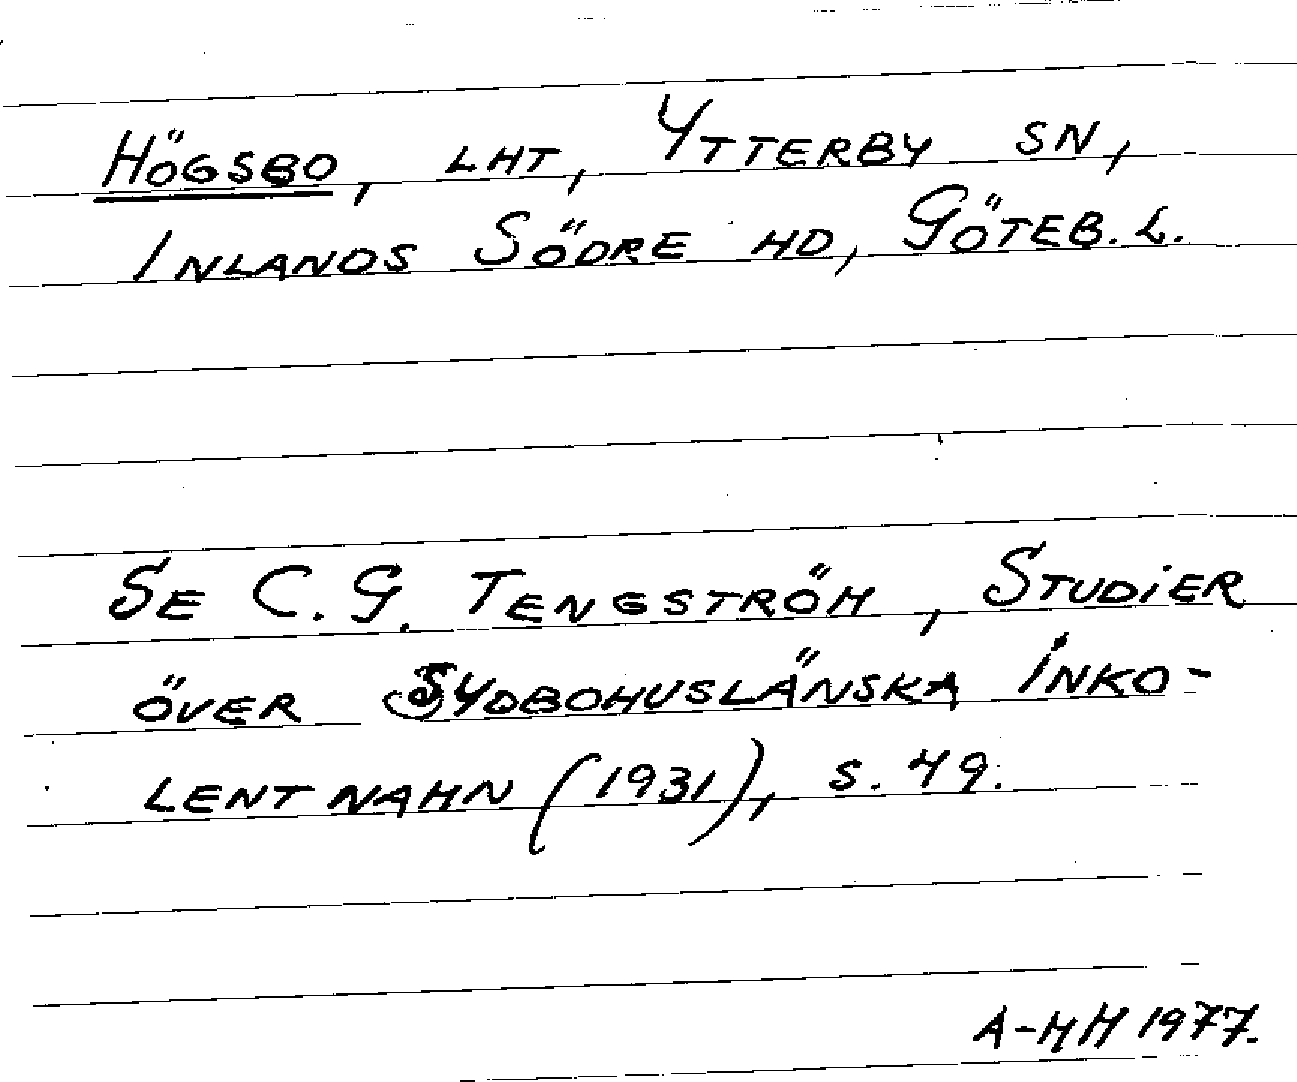 Högsbo, lht, Ytterby sn,
Inlands Södre hd, Göteb. L.
Se C. G. Tengström, Studier
över sydbohuslänska inko-
lentnamn (1931), s. 49.
A-MH 1977.